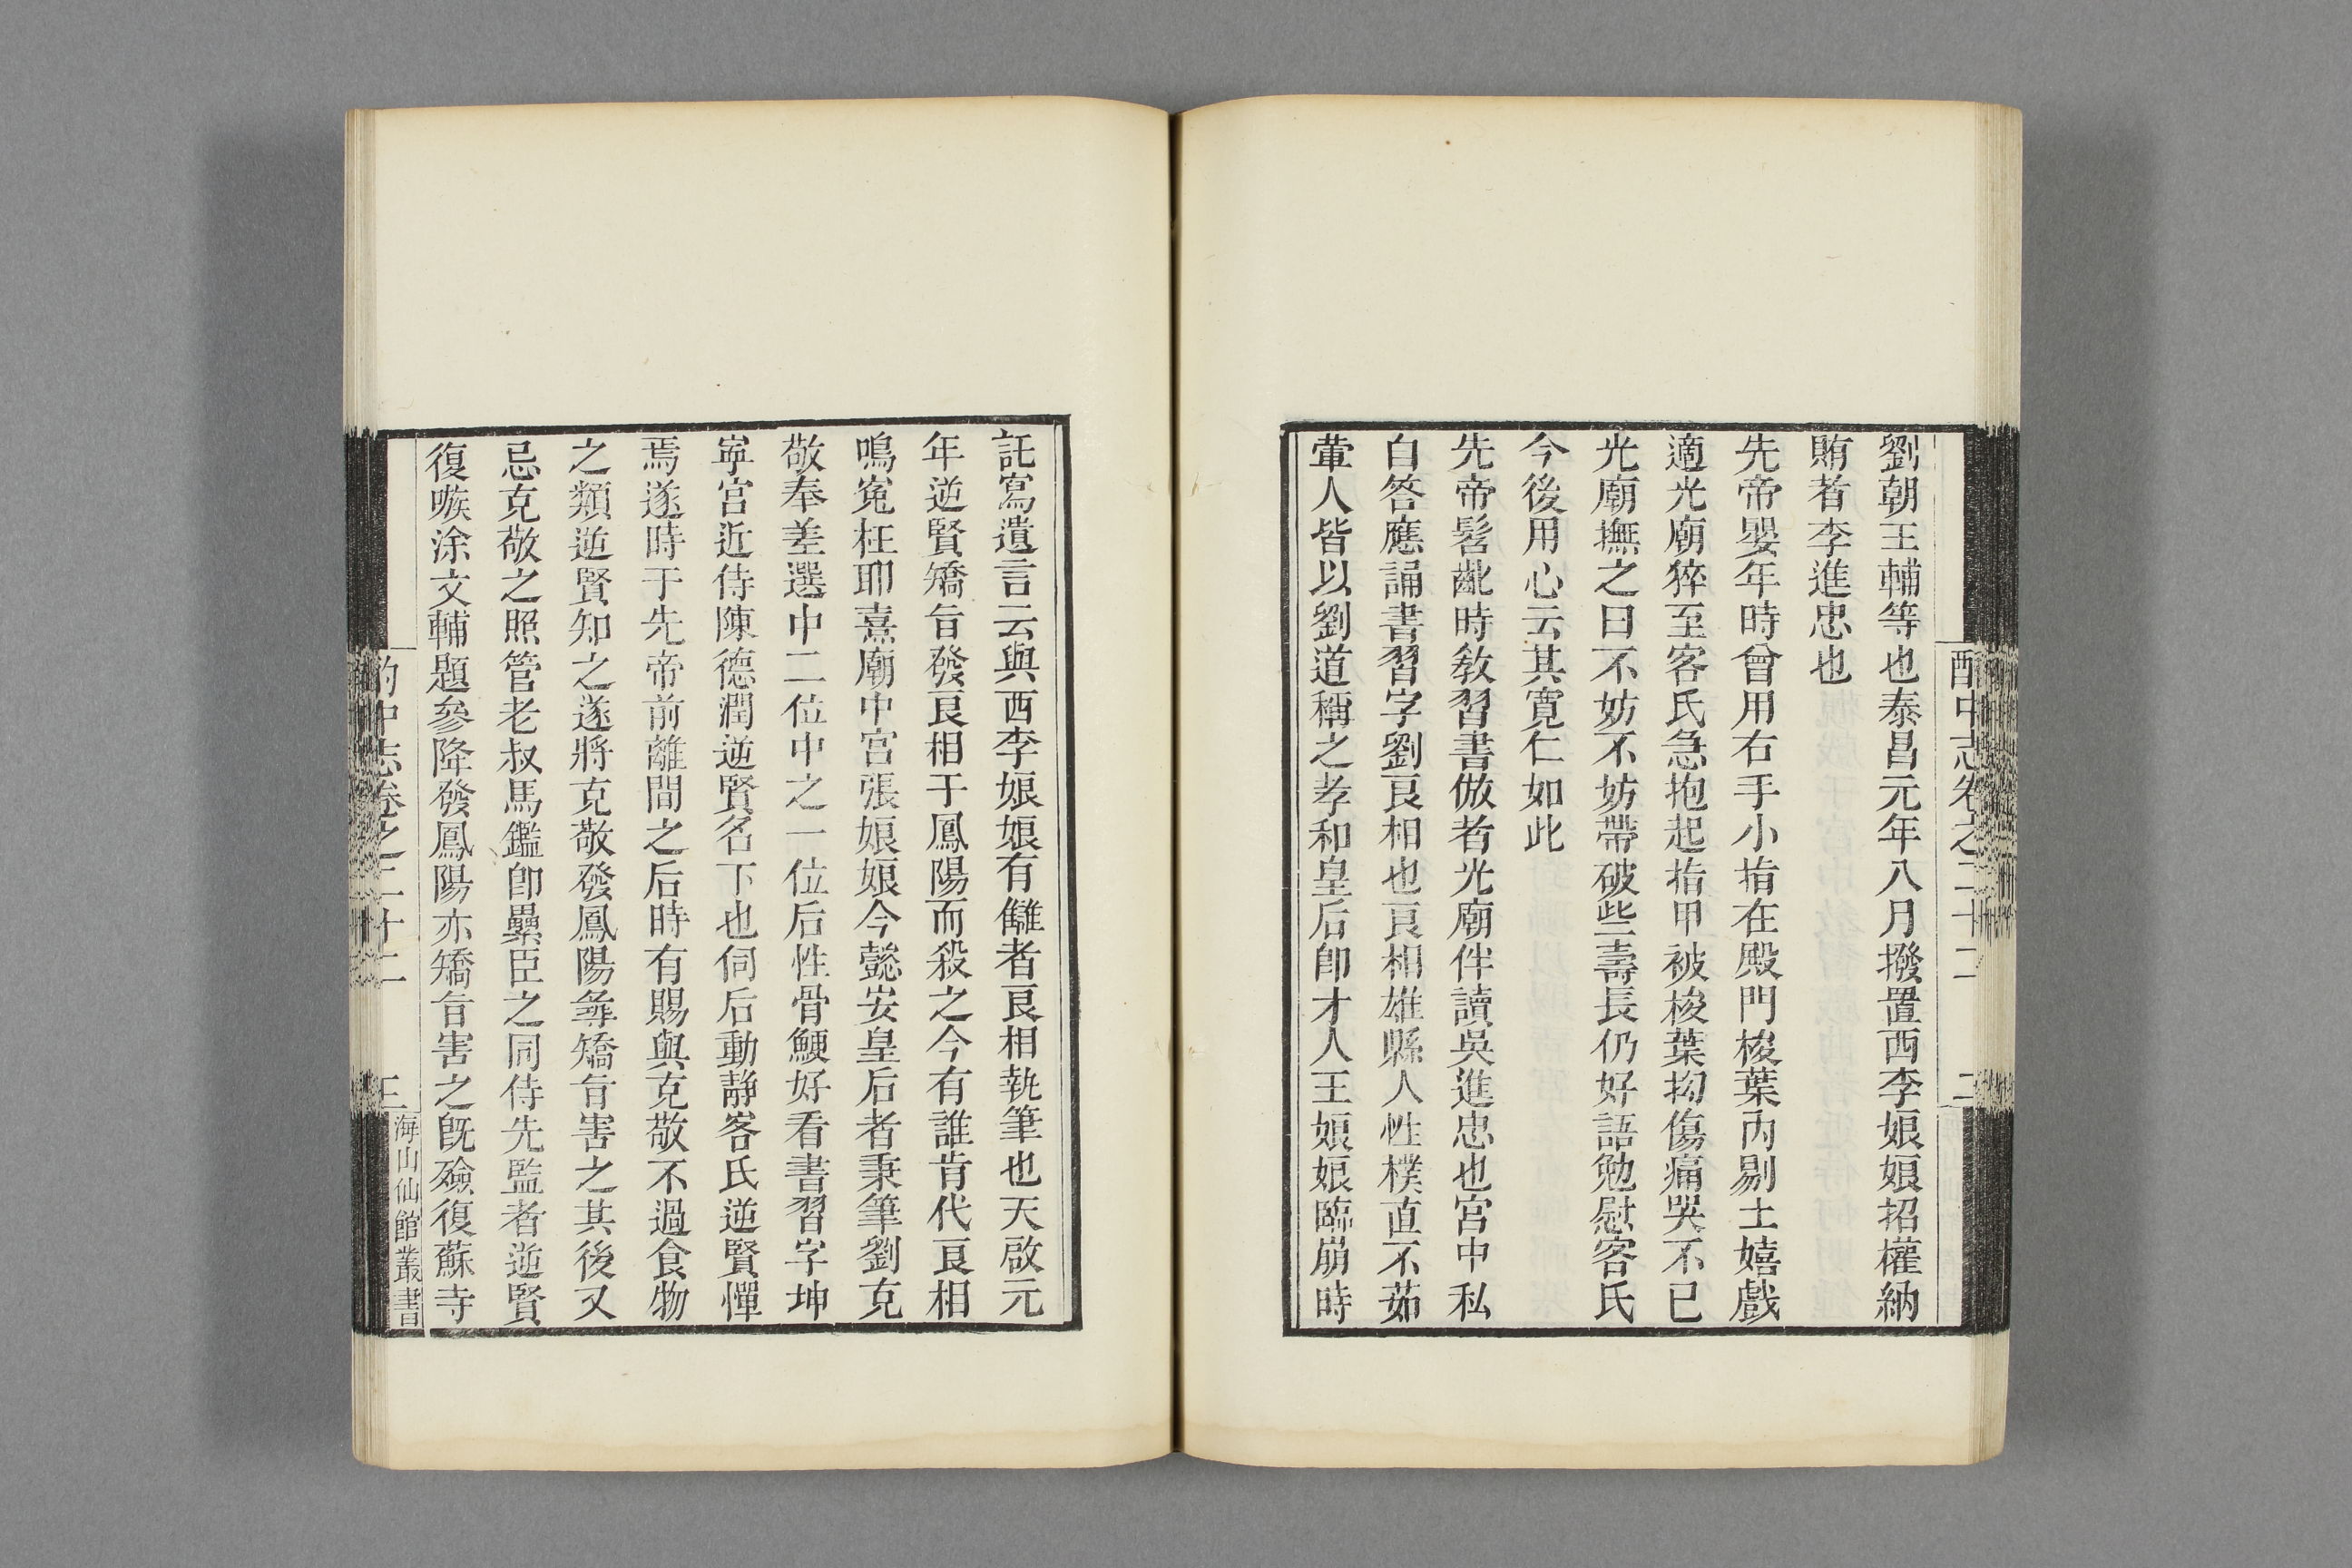 酌中志卷之二十二 二
劉朝王輔等也泰昌元年八月撥置西李娘娘招權納
賄者李進忠也
先帝嬰年時曾用右手小指在殿門棱葉內剔土嬉戲
適光廟猝至客氏急抱起指甲被棱葉抝傷痛哭不已
光廟撫之曰不妨不妨帶破些壽長仍好語勉慰客氏
今後用心云其寬仁如此
先帝髫齓時敎習書倣者光廟伴讀吳進忠也宮中私
自答應誦書習字劉良相也良相雄縣人性樸直不茹
葷人皆以劉道稱之孝和皇后卽才人王娘娘臨崩時
託寫遺言云與西李娘娘有讎者良相執筆也天啟元
年逆賢矯旨發良相于鳳陽而殺之今有誰肯代良相
鳴寃枉耶熹廟中宮張娘娘今懿安皇后者秉筆劉克
敬奉差選中二位中之一位后性骨鯁好看書習字坤
寧宮近侍陳德潤逆賢名下也伺后動靜客氏逆賢憚
焉遂時于先帝前離間之后時有賜與克敬不過食物
之類逆賢知之遂將克敬發鳳陽尋矯旨害之其後又
忌克敬之照管老叔馬鑑卽纍臣之同侍先監者逆賢
復嗾涂文輔題參降發鳳陽亦矯旨害之旣殮復蘇寺
酌中志卷之二十二 三 海山仙館叢書